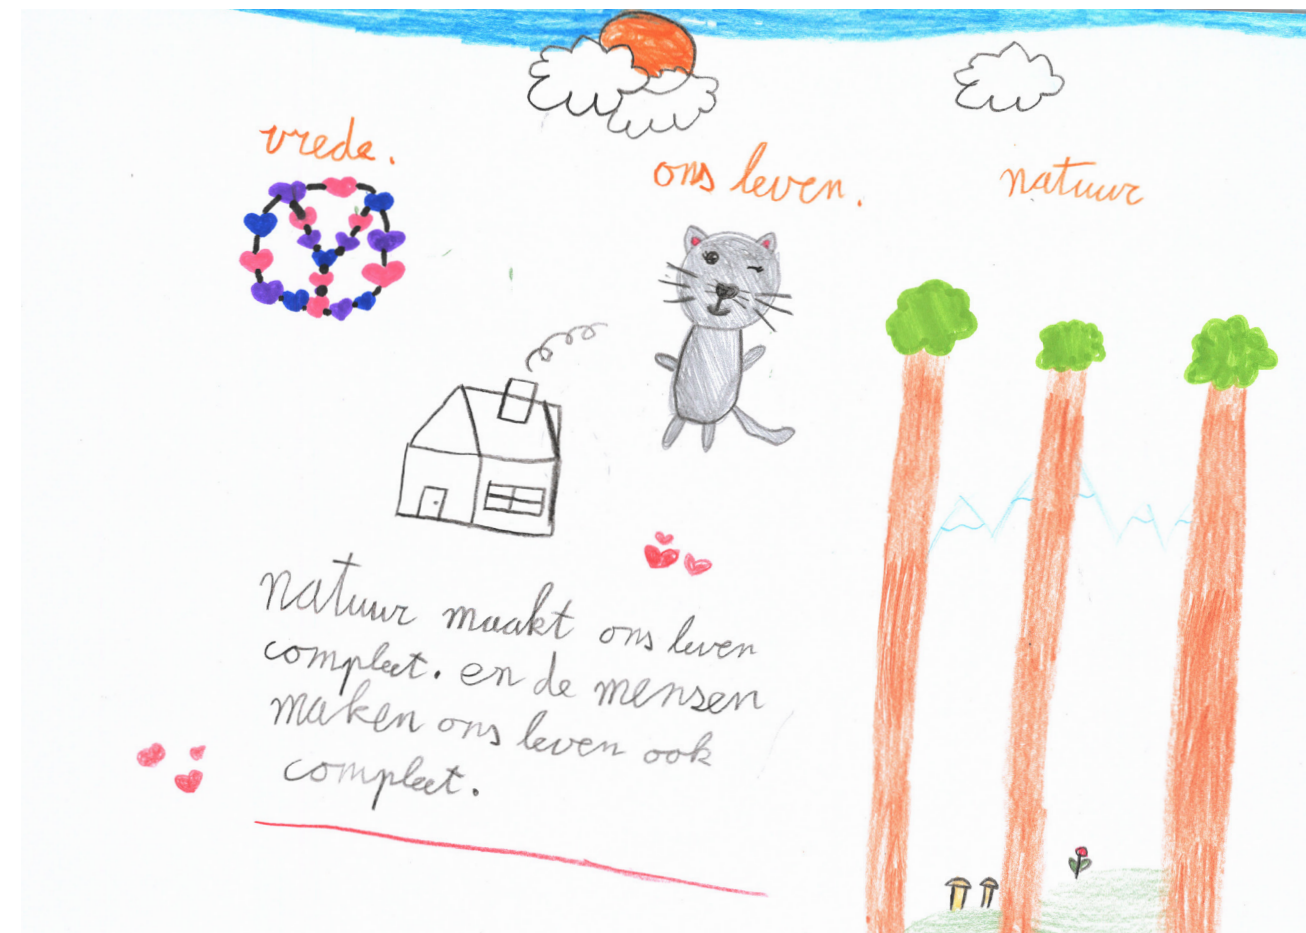 vrede.
ons leven.
natuur
natuur maakt ons leven
compleet. en de mensen
maken ons leven ook
compleet.